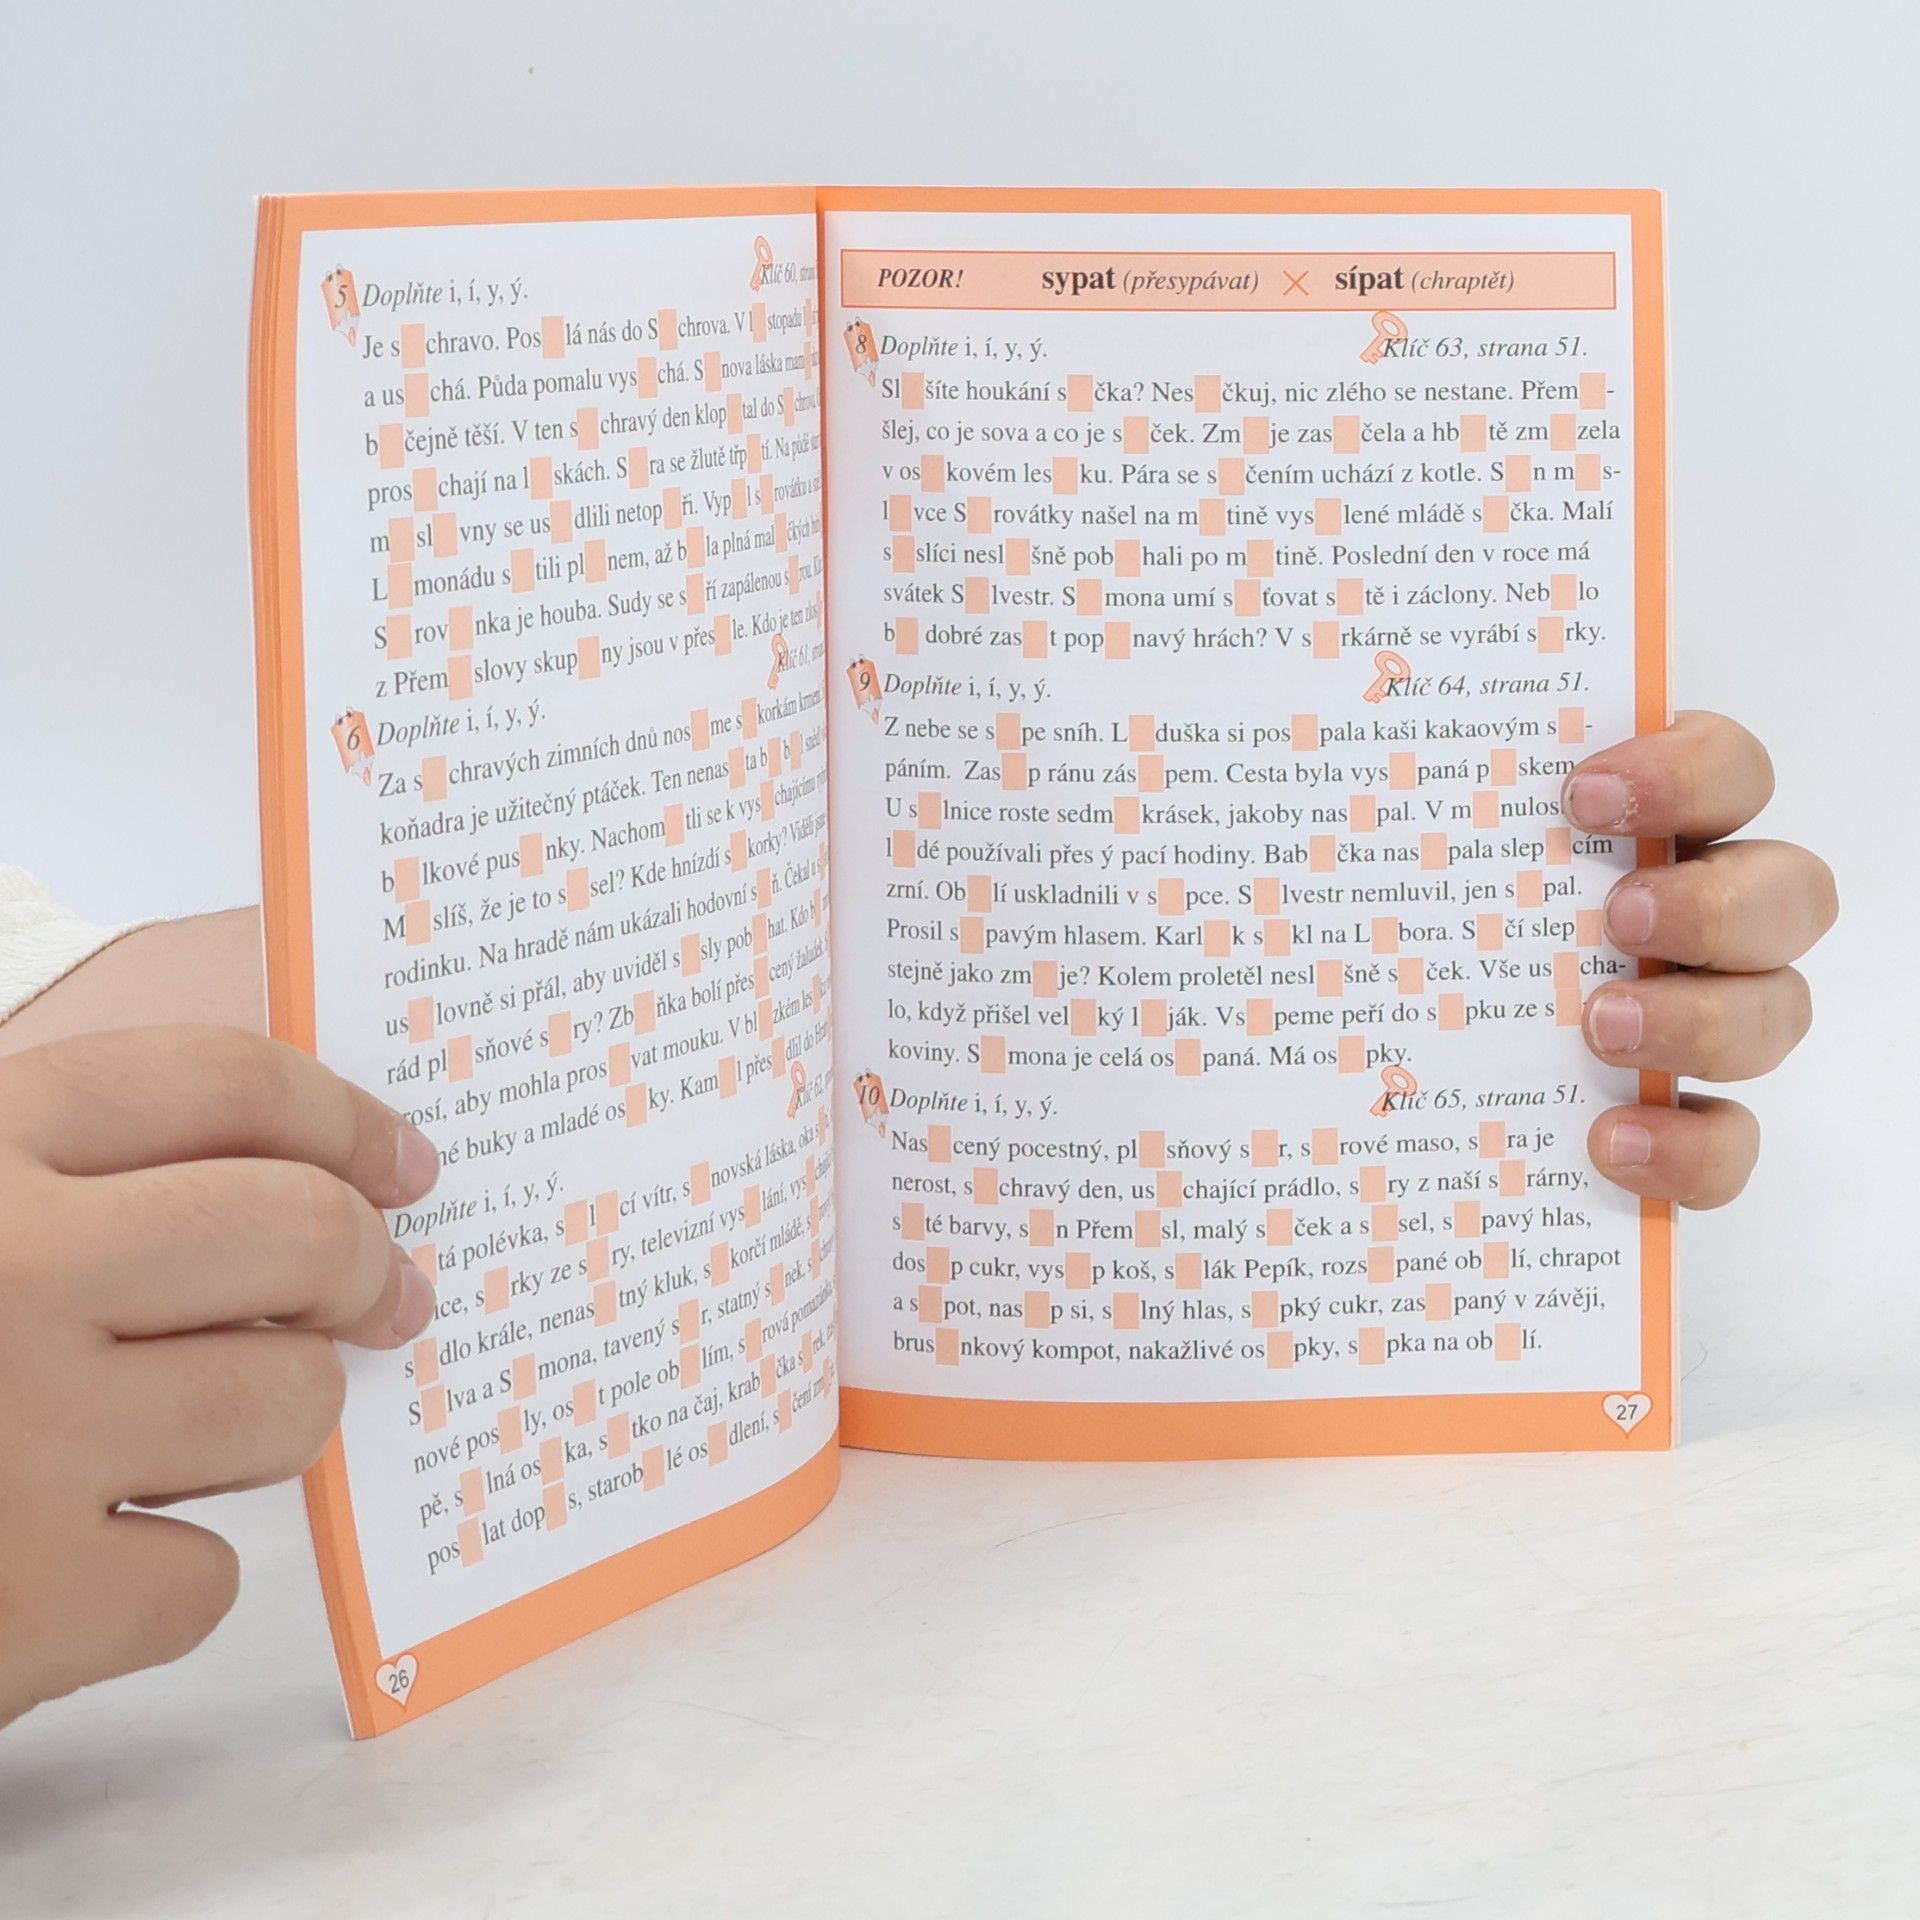 5 Doplňte i, í, y, ý.
Klíč 60,
Je s_chravo. Pos_lá nás do S_chrova. V l_stopadu
a us_chá. Půda pomalu vys_chá. S_nova láska
b_čejně těší. V ten s_chravý den klop_tal do
pros_chají na l_skách. S_ra se žlutě třp_tí. Na půdě
m_sl_vny se us_dlili netop_ři. Vyp_l s_rovátku a
L_monádu s_tili pl_nem, až b_la plná mal_čkých
S_rov_nka je houba. Sudy se s_ří zapálenou s_rou.
z Přem_slovy skup_ny jsou v přes_le. Kdo je ten
6 Doplňte i, í, y, ý.
Klíč 61,
Za s_chravých zimních dnů nos_me s_korkám krmení.
koňadra je užitečný ptáček. Ten nenas_ta b_b_l snědl
b_lkové pus_nky. Nachom_tli se k vys_chajícímu
M_slíš, že je to s_sel? Kde hnízdí s_korky? Viděli jsme
rodinku. Na hradě nám ukázali hodovní s_ň. Čekal u
us_lovně si přál, aby uviděl s_sly pob_hat. Kdo
rád pl_sňové s_ry? Zb_ňka bolí přes_cený žaludek.
rosí, aby mohla pros_vat mouku. V bl_zkém
né buky a mladé os_ky. Kam_l přes_dlil do
Klíč 62,
Doplňte i, í, y, ý.
_tá polévka, s_l_cí vítr, s_novská láska, oka
ice, s_rky ze s_ry, televizní vys_lání,
s_dlo krále, nenas_tný kluk, s_korčí mládě,
S_lva a S_mona, tavený s_r, statný s_nek,
nové pos_ly, os_t pole ob_lím, s_rová pomazánka,
pě, s_lná os_ka, s_tko na čaj, krab_čka s_rek,
pos_lat dop_s, starob_lé os_dlení, s_čení
26
POZOR! sypat (přesypávat) × sípat (chraptět)
8 Doplňte i, í, y, ý. Klíč 63, strana 51.
Sl_šíte houkání s_čka? Nes_čkuj, nic zlého se nestane. Přem_-
šlej, co je sova a co je s_ček. Zm_je zas_čela a hb_tě zm_zela
v os_kovém les_ku. Pára se s_čením uchází z kotle. S_n m_s-
l_vce S_rovátky našel na m_tině vys_lené mládě s_čka. Malí
s_slíci nesl_šně pob_hali po m_tině. Poslední den v roce má
svátek S_lvestr. S_mona umí s_ťovat s_tě i záclony. Neb_lo
b_ dobré zas_t pop_navý hrách? V s_rkárně se vyrábí s_rky.
9 Doplňte i, í, y, ý. Klíč 64, strana 51.
Z nebe se s_pe sníh. L_duška si pos_pala kaši kakaovým s_-
páním. Zas_p ránu zás_pem. Cesta byla vys_paná p_skem
U s_lnice roste sedm_krásek, jakoby nas_pal. V m_nulos
l_dé používali přes ý pací hodiny. Bab_čka nas_pala slep_cím
zrní. Ob_lí uskladnili v s_pce. S_lvestr nemluvil, jen s_pal.
Prosil s_pavým hlasem. Karl_k s_kl na L_bora. S_čí slep_
stejně jako zm_je? Kolem proletěl nesl_šně s_ček. Vše us_cha-
lo, když přišel vel_ký l_ják. Vs_peme peří do s_pku ze s_
koviny. S_mona je celá os_paná. Má os_pky.
10 Doplňte i, í, y, ý. Klíč 65, strana 51.
Nas_cený pocestný, pl_sňový s_r, s_rové maso, s_ra je
nerost, s_chravý den, us_chající prádlo, s_ry z naší s_rárny,
s_té barvy, s_n Přem_sl, malý s_ček a s_sel, s_pavý hlas,
dos_p cukr, vys_p koš, s_lák Pepík, rozs_pané ob_lí, chrapot
a s_pot, nas_p si, s_lný hlas, s_pký cukr, zas_paný v závěji,
brus_nkový kompot, nakažlivé os_pky, s_pka na ob_lí.
27